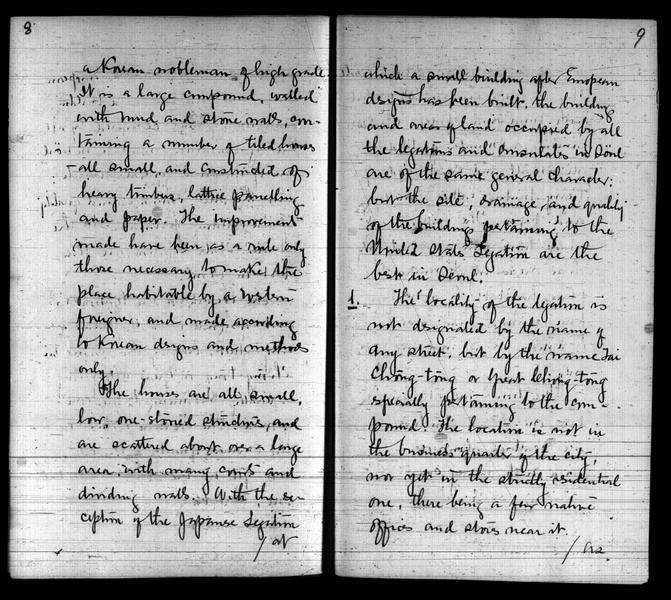 8
a Korean nobleman of high grade.
It is a large compound, walled
with mud and stone walls, con-
taining a number of tiled houses
all small, and constructed of
heavy timber, lattice panelling
and paper. The improvements
made have been as a rule only
those necessary to make the
place habitable by a Western
foreigner, and made according
to Korean designs and methods
only.
The houses are all small,
low, one-storied structures, and
are scattered about over a large
area, with many courts and
dividing walls. With the ex-
ception of the Japanese Legation
/ at
9
which a small building after European
designs has been built, the buildings
and area of land occupied by all
the legations and consulates in Söul
are of the same general character:
but the site, drainage, and quality
of the buildings pertaining to the
United States Legation are the
best in Söul.
1. The locality of the legation is
not designated by the name of
any street, but by the name Tai
Chöng-tong or Great Chöng-tong
specially pertaining to the com-
pound. The location is not in
the business quarter of the city,
nor yet in the strictly residential
one, there being a few native
offices and stores near it.
/ as.